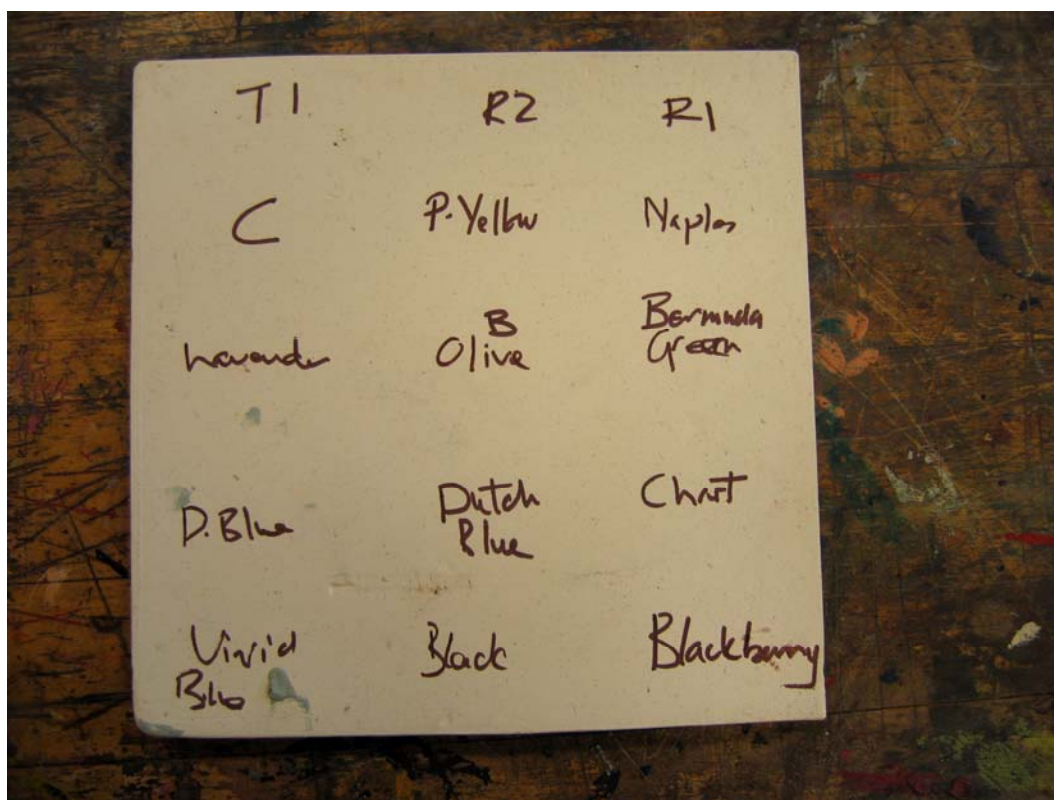 T1 R2 R1
C P.Yellow Naples
Lavender B Olive Bermuda Green
D.Blue Dutch Blue Chart
Vivid Blue Black Blackberry